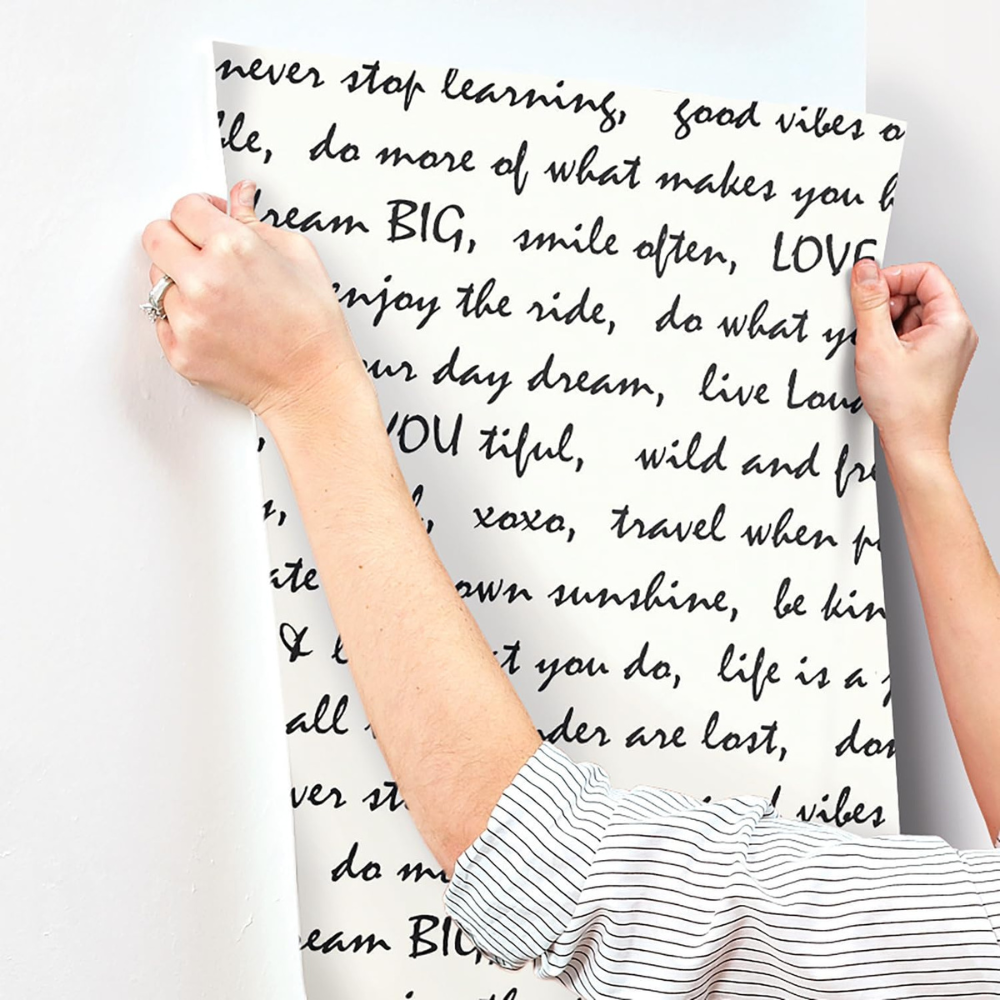 never stop learning, good vibes
do more of what makes you
dream BIG, smile often, LOVE
enjoy the ride, do what
day dream, live Loud
YOU tiful, wild and
xoxo, travel when
own sunshine, be
& you do, life is a
all are lost, don
vibes
do
BIG,